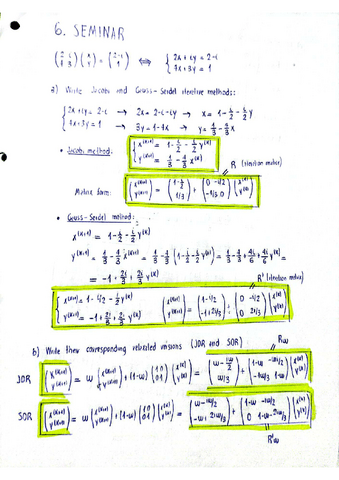 6. SEMINAR
(2 i / 4 3) (x / y) = (2-i / 1) ⟺ { 2x+iy = 2-i / 4x+3y = 1
a) Write Jacobi and Gauss-Seidel iterative methods:
{ 2x+iy = 2-i → 2x = 2-i-iy → x = 1 - i/2 - i/2 y
4x+3y = 1 → 3y = 1-4x → y = 1/3 - 4/3 x
• Jacobi method: { x^(k+1) = 1 - i/2 - i/2 y^(k)
y^(k+1) = 1/3 - 4/3 x^(k)
R (iteration matrix)
Matrix form: (x^(k+1) / y^(k+1)) = (1-i/2 / 1/3) + (0 -i/2 / -4/3 0) (x^(k) / y^(k))
• Gauss-Seidel method:
x^(k+1) = 1 - i/2 - i/2 y^(k)
y^(k+1) = 1/3 - 4/3 x^(k+1) = 1/3 - 4/3 (1 - i/2 - i/2 y^(k)) = 1/3 - 4/3 + 4i/6 + 4i/6 y^(k) =
= -1 + 2i/3 + 2i/3 y^(k)
R' (iteration matrix)
{ x^(k+1) = 1 - i/2 - i/2 y^(k)
y^(k+1) = -1 + 2i/3 + 2i/3 y^(k)
(x^(k+1) / y^(k+1)) = (1-i/2 / -1+2i/3) + (0 -i/2 / 0 2i/3) (x^(k) / y^(k))
b) Write their corresponding relaxed versions (JOR and SOR)
Rw
JOR (x^(k+1) / y^(k+1)) = w (x^(k+1) / y^(k+1)) + (1-w) (1 0 / 0 1) (x^(k) / y^(k)) = (w - iw/2 / w/3) + (1-w -iw/2 / -4w/3 1-w) (x^(k) / y^(k))
SOR (x^(k+1) / y^(k+1)) = w (x^(k+1) / y^(k+1)) + (1-w) (1 0 / 0 1) (x^(k) / y^(k)) = (w - iw/2 / -w + 2iw/3)
R'w